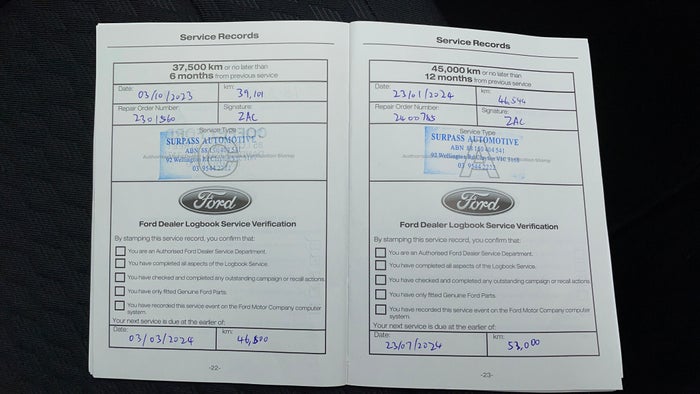 Service Records
37,500 km or no later than
6 months from previous service
Date: km:
03/10/2023 39,101
Repair Order Number: Signature:
2301560 ZAC
Service Type
SURPASS AUTOMOTIVE
ABN 88 150 404 541
03 9544 2222
Ford
Ford Dealer Logbook Service Verification
By stamping this service record, you confirm that:
You are an Authorised Ford Dealer Service Department.
You have completed all aspects of the Logbook Service.
You have checked and completed any outstanding campaign or recall actions.
You have only fitted Genuine Ford Parts.
You have recorded this service event on the Ford Motor Company computer
system.
Your next service is due at the earlier of:
Date: km:
03/03/2024 46,500
-22-
Service Records
45,000 km or no later than
12 months from previous service
Date: km:
23/01/2024 46,544
Repair Order Number: Signature:
2400785 ZAC
Service Type
A
SURPASS AUTOMOTIVE
ABN 88 150 404 541
92 Wellington Rd Clayton VIC 3168
03 9544 2222
Ford
Ford Dealer Logbook Service Verification
By stamping this service record, you confirm that:
You are an Authorised Ford Dealer Service Department.
You have completed all aspects of the Logbook Service.
You have checked and completed any outstanding campaign or recall actions.
You have only fitted Genuine Ford Parts.
You have recorded this service event on the Ford Motor Company computer
system.
Your next service is due at the earlier of:
Date: km:
23/07/2024 53,000
-23-